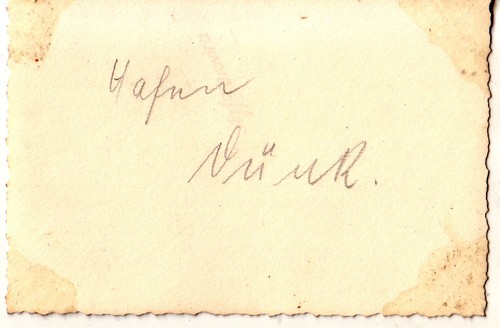 Hafen
Dünk.